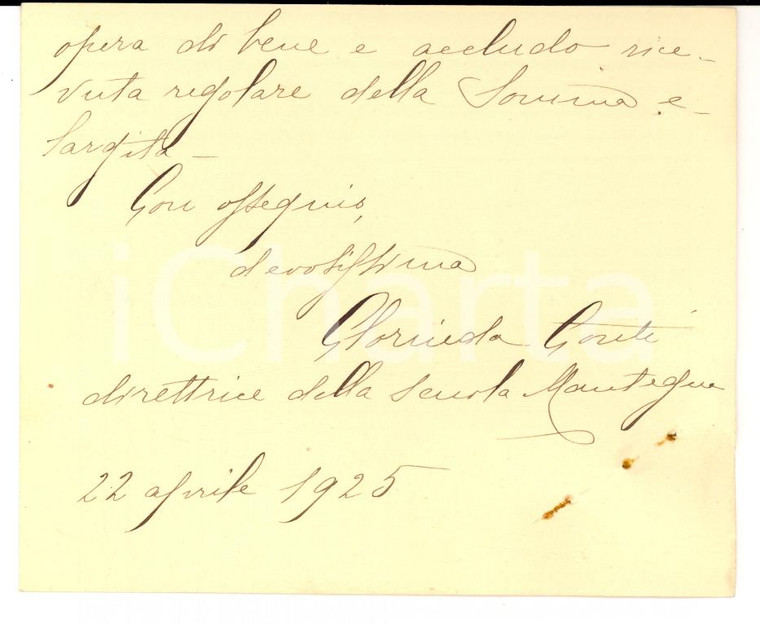 opera di bene e accludo rice-
vuta regolare della Somma e-
largita -
Con ossequio,
devotissima
Clorinda Conti
direttrice della Scuola Mantegna
22 aprile 1925
iCharta